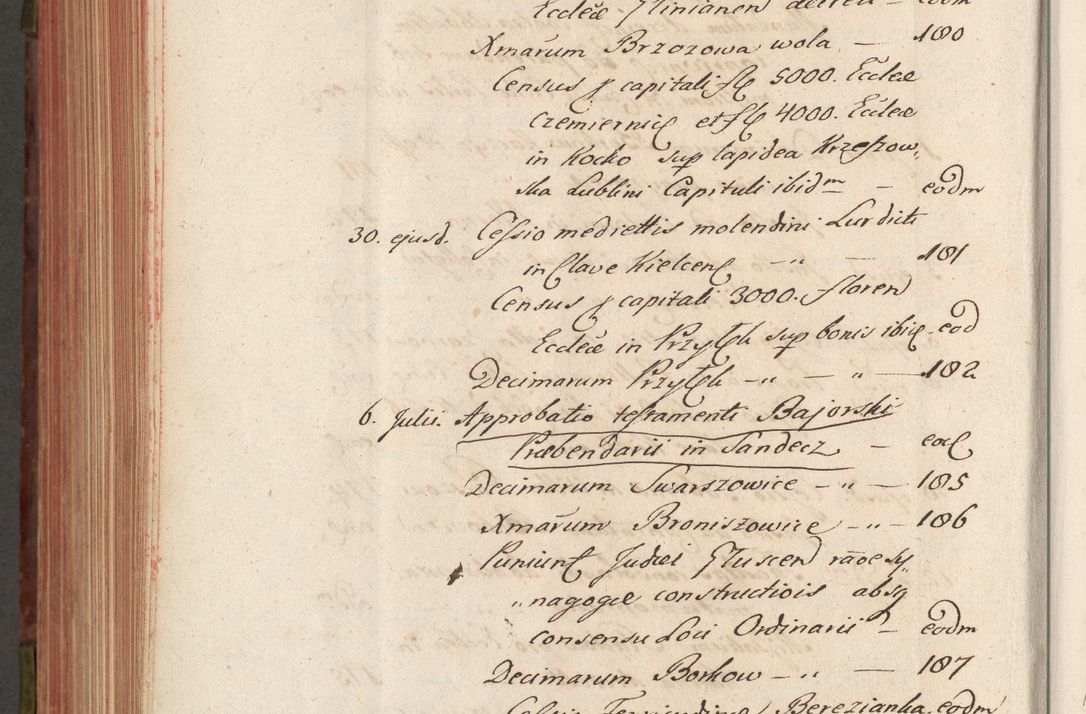 Eccleæ Glinianen decreti – eodm
Xmarum Brzozowa wola — 180
Census ꝑ capitali fl 5000. Eccleæ
Czemiernic et fl 4000. Eccleæ
in Kocko sup lapidea Krzeszow„
ska Lublini Capituli ibidm – eodm
30. ejusd. Cessio medrettis molendini Lurdicti
in Clave Kielcen –„– 181
Census ꝑ capitali 3000. floren
Eccleæ in Przytyk sup bonis ibid. eod
Decimarum Przytyk –„ – „ — 182
6. Julii. Approbatio testamenti Bajorski
Præbendarii in Sandecz – eod
Decimarum Swarszowice – „ – 185
Xmarum Broniszowice –„– 186
Puniun Judei Gluscen raoe sy„
„nagogæ constructiois absq
consensu Loci Ordinarii – eodm
Decimarum Borkow –„ — 187
Berezianka eodm